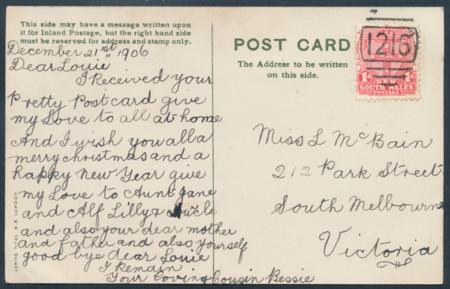 This side may have a message written upon
it for Inland Postage, but the right hand side
must be reserved for address and stamp only.
December 21st 1906
Dear Louie
I Received your
Pretty Postcard give
my Love to all at home
And I wish you all a
merry christmas and a
happy new Year give
my Love to Aunt Jane
and Alf Lilly &
and also your dear mother
and Father and also yourself
good bye dear Louie
I Remain
Your Loving Cousin Bessie
POST CARD
The Address to be written
on this side.
1216
SOUTH WALES
POSTAGE
Miss L McBain
212 Park Street
South Melbourne
Victoria